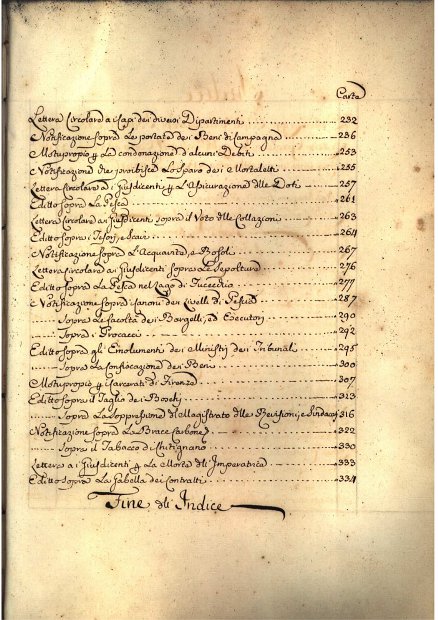 Carta
Lettera Circolare a Capi dei diversi Dipartimenti 232
Notificazione sopra Le portate dei Beni di Campagna 236
Motuproprio p La condonazione d'alcuni Debiti 253
Notificazione che proibisce Lo sparo dei Mortaletti 255
Lettera Circolare a i Jusdicenti p L'Assicurazione dlle Doti 257
Editto sopra La Pesca 261
Lettera Circolare ai Jusdicenti sopra il Voto dlle Collazioni 263
Editto sopra i Tesori, e Scavi 264
Notificazione sopra L'Acquavite, e Rosolj 267
Lettera Circolare ai Jusdicenti sopra Le Sepolture 276
Editto sopra La Pesca nel Lago di Fucecchio 277
Notificazione sopra i Canoni dei Livelli di 287
Sopra Le facoltà dei Bargelli, ed Executori 290
Sopra i Procacci 292
Editto sopra gli Emolumenti dei Ministri dei Tribunali 295
Sopra La Confiscazione dei Beni 300
Motuproprio p i Carcerati di Firenze 307
Editto sopra il Taglio dei Boschi 313
Sopra La Soppressione dl Magistrato dlle Revisioni, e Sindacati 316
Notificazione sopra La Brace, e Carbone 322
Sopra il Tabacco di Chitignano 330
Lettera a i Jusdicenti p La Morte dll'Imperatrice 333
Editto sopra La Gabella dei Contratti 334
Fine dll'Indice